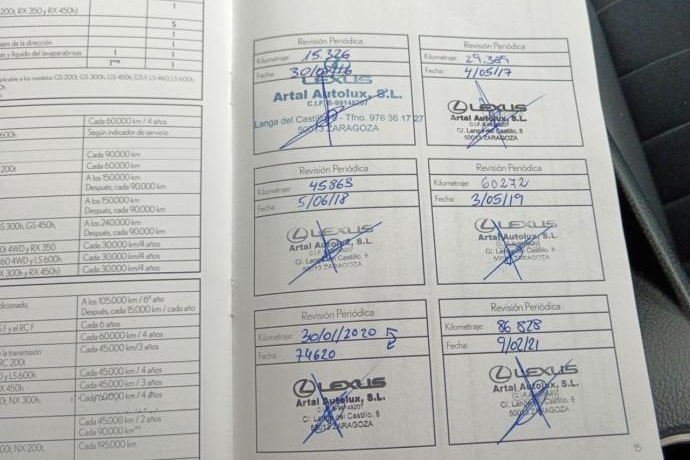 200t, RX 350 y RX 450h)
1
5
1
ajes de la dirección
1
as y líquido del lavaparabrisas
1
1
Cada 60.000 km / 4 años
600h
Según indicador de servicio
Cada 90.000 km
200t
Cada 60.000 km
A los 150.000 km
Después, cada 90.000 km
A los 150.000 km
Después, cada 90.000 km
GS 300h, GS 450h,
A los 240.000 km
Después, cada 90.000 km
4WD y RX 350
Cada 30.000 km/4 años
460 4WD y LS 600h
Cada 30.000 km/4 años
X 300h y RX 450h)
Cada 30.000 km/4 años
dicionado,
A los 105.000 km / 6º año
Después, cada 15.000 km / cada año
S F y el RC F
Cada 6 años
Cada 60.000 km / 4 años
la transmisión
Cada 45.000 km/3 años
RC 200t
y LS 600h
Cada 45.000 km / 4 años
X 450h
Cada 45.000 km / 3 años
0t, NX 300h,
Cada 60.000 km / 4 años
Cada 45.000 km / 2 años
Cada 90.000 km
00t, NX 200t,
Cada 195.000 km
Revisión Periódica
Kilometraje: 15.326
Fecha:
LEXUS
Artal Autolux, S.L.
C.I.F. B-99148207
Langa del Castillo, - Tfno. 976 36 17 27
50013 ZARAGOZA
Revisión Periódica
Kilometraje: 29.389
Fecha: 4/05/17
LEXUS
Artal Autolux, S.L.
C/. Langa del Castillo, 8
50013 ZARAGOZA
Revisión Periódica
Kilometraje: 45863
Fecha: 5/06/18
LEXUS
Artal Autolux, S.L.
C/. Langa del Castillo, 8
50013 ZARAGOZA
Revisión Periódica
Kilometraje: 60272
Fecha: 3/05/19
LEXUS
Artal Autolux, S.L.
C/. Langa del Castillo, 8
50013 ZARAGOZA
Revisión Periódica
Kilometraje: 30/01/2020
Fecha: 74620
LEXUS
Artal Autolux, S.L.
C/. Langa del Castillo, 8
50013 ZARAGOZA
Revisión Periódica
Kilometraje: 86828
Fecha: 9/02/21
LEXUS
Artal Autolux, S.L.
C/. Langa del Castillo, 8
50013 ZARAGOZA
15